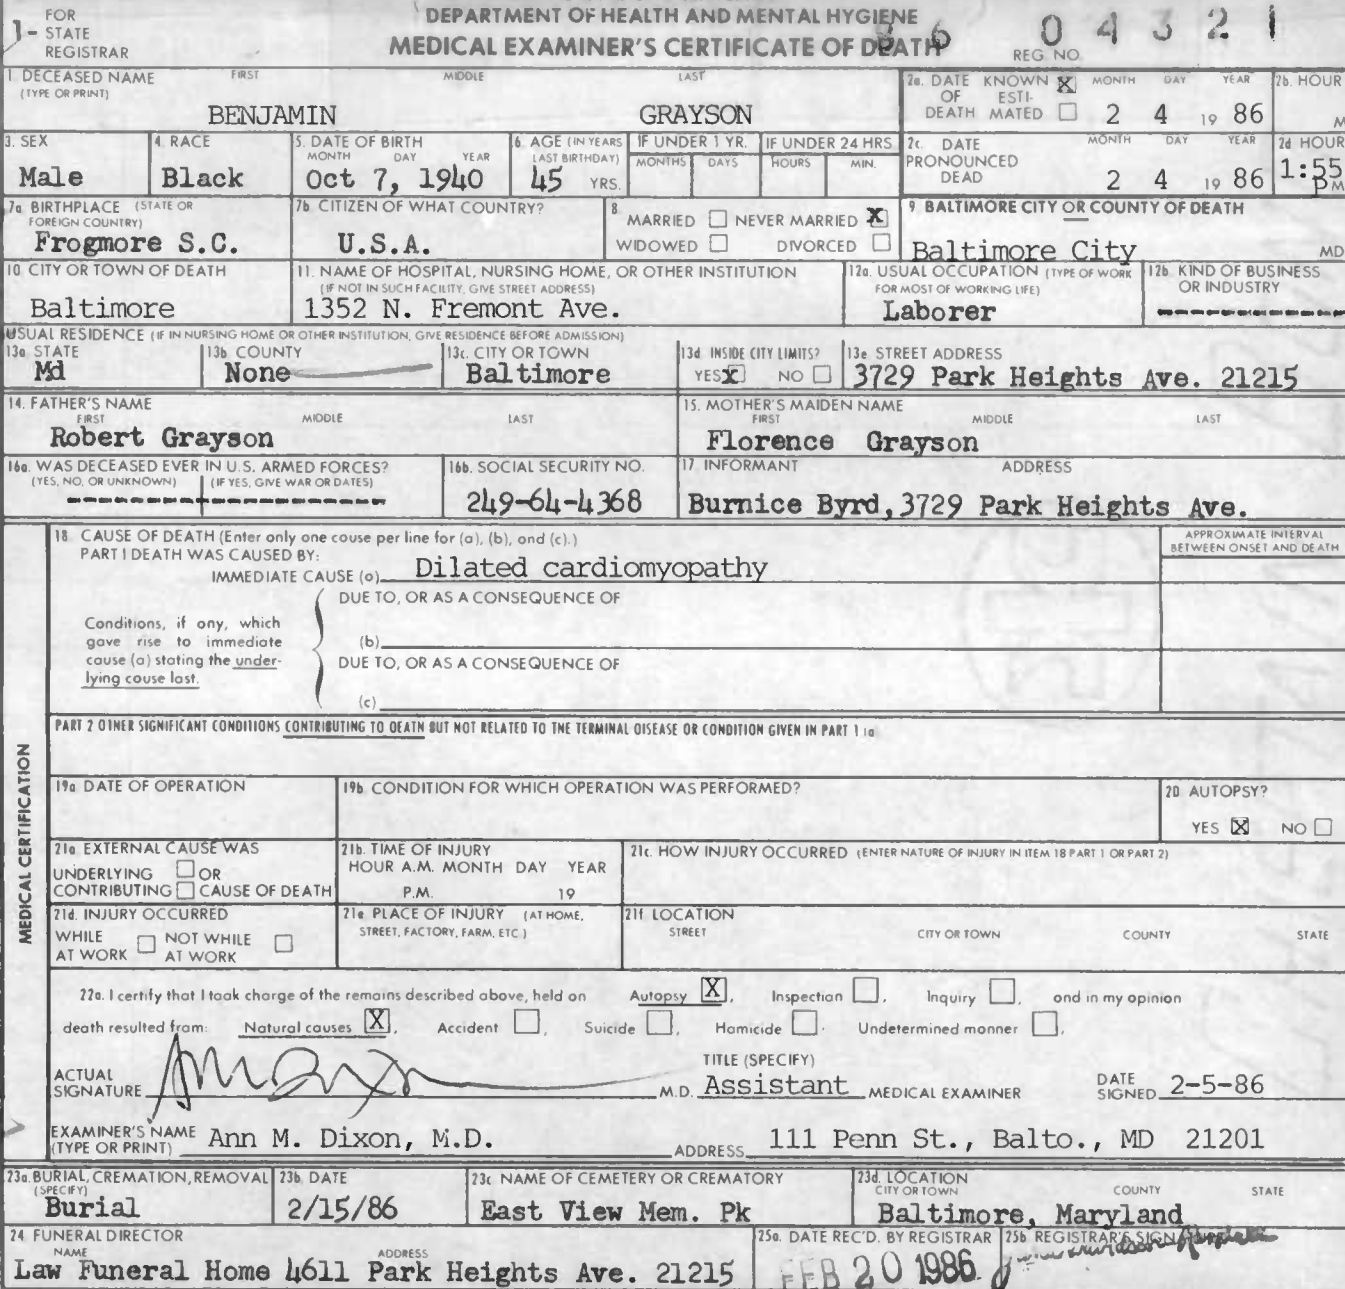 1- FOR STATE REGISTRAR
DEPARTMENT OF HEALTH AND MENTAL HYGIENE
MEDICAL EXAMINER'S CERTIFICATE OF DEATH
86 04321
REG. NO.
1. DECEASED NAME (TYPE OR PRINT) FIRST MIDDLE LAST
BENJAMIN GRAYSON
2a. DATE OF DEATH KNOWN X ESTIMATED MONTH DAY YEAR
2 4 19 86
2b. HOUR
M
3. SEX
Male
4. RACE
Black
5. DATE OF BIRTH MONTH DAY YEAR
Oct 7, 1940
6. AGE (IN YEARS LAST BIRTHDAY)
45 YRS.
IF UNDER 1 YR. MONTHS DAYS
IF UNDER 24 HRS HOURS MIN.
2c. DATE PRONOUNCED DEAD MONTH DAY YEAR
2 4 19 86
2d HOUR
1:55 PM
7a BIRTHPLACE (STATE OR FOREIGN COUNTRY)
Frogmore S.C.
7b. CITIZEN OF WHAT COUNTRY?
U.S.A.
8. MARRIED NEVER MARRIED X
WIDOWED DIVORCED
9. BALTIMORE CITY OR COUNTY OF DEATH
Baltimore City MD
10. CITY OR TOWN OF DEATH
Baltimore
11. NAME OF HOSPITAL, NURSING HOME, OR OTHER INSTITUTION
(IF NOT IN SUCH FACILITY, GIVE STREET ADDRESS)
1352 N. Fremont Ave.
12a. USUAL OCCUPATION (TYPE OF WORK FOR MOST OF WORKING LIFE)
Laborer
12b. KIND OF BUSINESS OR INDUSTRY
USUAL RESIDENCE (IF IN NURSING HOME OR OTHER INSTITUTION, GIVE RESIDENCE BEFORE ADMISSION)
13a STATE
Md
13b COUNTY
None
13c. CITY OR TOWN
Baltimore
13d INSIDE CITY LIMITS?
YES X NO
13e STREET ADDRESS
3729 Park Heights Ave. 21215
14. FATHER'S NAME FIRST MIDDLE LAST
Robert Grayson
15. MOTHER'S MAIDEN NAME FIRST MIDDLE LAST
Florence Grayson
16a. WAS DECEASED EVER IN U.S. ARMED FORCES?
(YES, NO, OR UNKNOWN) (IF YES, GIVE WAR OR DATES)
16b. SOCIAL SECURITY NO.
249-64-4368
17. INFORMANT ADDRESS
Burnice Byrd, 3729 Park Heights Ave.
MEDICAL CERTIFICATION
18. CAUSE OF DEATH (Enter only one cause per line for (a), (b), and (c).)
PART I DEATH WAS CAUSED BY:
IMMEDIATE CAUSE (a) Dilated cardiomyopathy
APPROXIMATE INTERVAL BETWEEN ONSET AND DEATH
DUE TO, OR AS A CONSEQUENCE OF
Conditions, if any, which gave rise to immediate cause (a) stating the underlying cause last.
(b)
DUE TO, OR AS A CONSEQUENCE OF
(c)
PART 2 OTHER SIGNIFICANT CONDITIONS CONTRIBUTING TO DEATH BUT NOT RELATED TO THE TERMINAL DISEASE OR CONDITION GIVEN IN PART 1 (a
19a DATE OF OPERATION
19b. CONDITION FOR WHICH OPERATION WAS PERFORMED?
20 AUTOPSY?
YES X NO
21a EXTERNAL CAUSE WAS
UNDERLYING OR
CONTRIBUTING CAUSE OF DEATH
21b. TIME OF INJURY
HOUR A.M. MONTH DAY YEAR
P.M. 19
21c. HOW INJURY OCCURRED (ENTER NATURE OF INJURY IN ITEM 18 PART 1 OR PART 2)
21d. INJURY OCCURRED
WHILE AT WORK NOT WHILE AT WORK
21e PLACE OF INJURY (AT HOME, STREET, FACTORY, FARM, ETC.)
21f LOCATION
STREET CITY OR TOWN COUNTY STATE
22a. I certify that I took charge of the remains described above, held on Autopsy X, Inspection , Inquiry , and in my opinion
death resulted from: Natural causes X, Accident , Suicide , Homicide . Undetermined manner ,
ACTUAL SIGNATURE
M.D.
TITLE (SPECIFY)
Assistant MEDICAL EXAMINER
DATE SIGNED 2-5-86
EXAMINER'S NAME (TYPE OR PRINT) Ann M. Dixon, M.D.
ADDRESS 111 Penn St., Balto., MD 21201
23a. BURIAL, CREMATION, REMOVAL (SPECIFY)
Burial
23b. DATE
2/15/86
23c NAME OF CEMETERY OR CREMATORY
East View Mem. Pk
23d. LOCATION CITY OR TOWN COUNTY STATE
Baltimore, Maryland
24 FUNERAL DIRECTOR
NAME ADDRESS
Law Funeral Home 4611 Park Heights Ave. 21215
25a. DATE REC'D. BY REGISTRAR
FEB 20 1986
25b REGISTRAR'S SIGNATURE